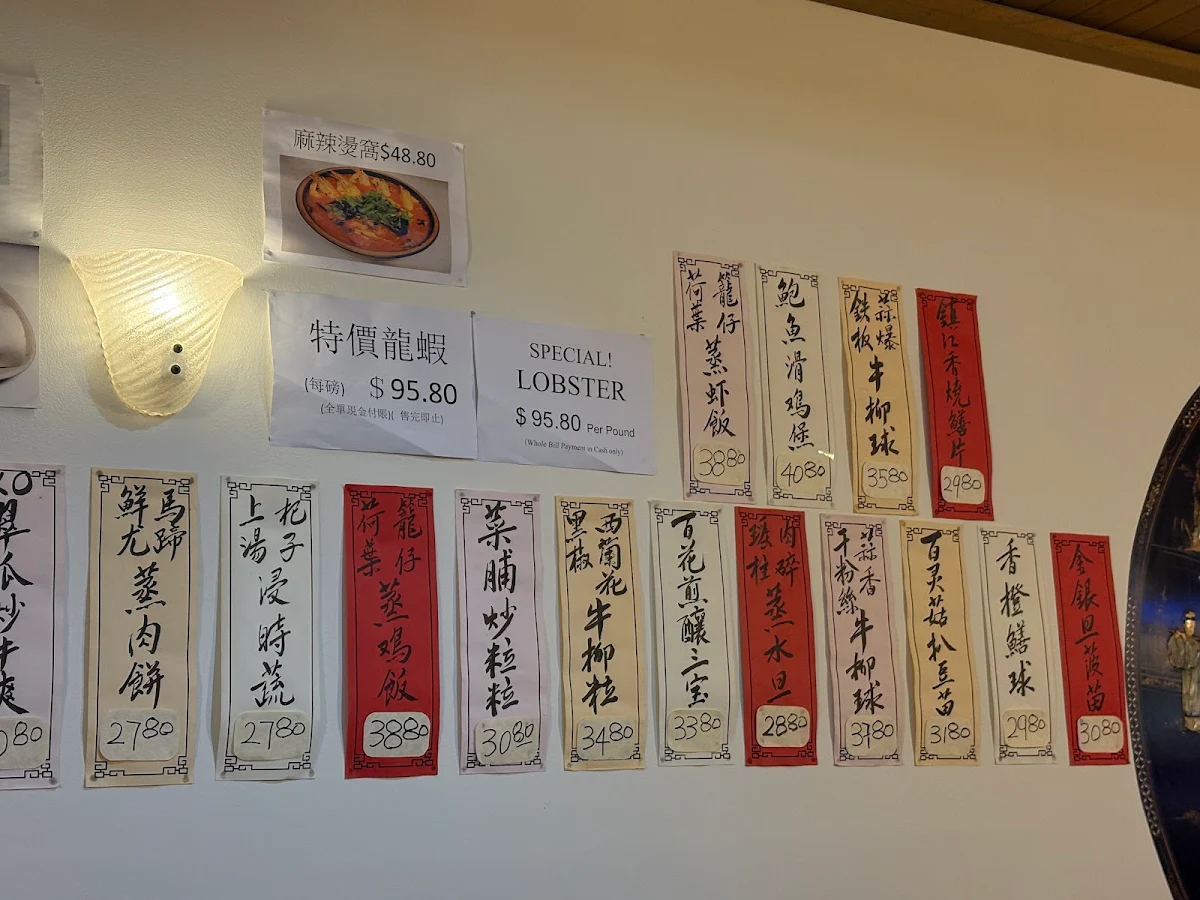 麻辣燙窩$48.80
特價龍蝦
(每磅) $95.80
(全單現金付賬)( 售完即止)
SPECIAL!
LOBSTER
$95.80 Per Pound
(Whole Bill Payment in Cash only)
籠仔荷葉蒸虾飯
3880
鮑魚滑鸡煲
4080
蒜爆鉄板牛柳球
3580
鎮江香燒鱔片
2980
XO翠瓜炒牛爽
80
馬蹄鮮尤蒸肉餅
2780
杞子上湯浸時蔬
2780
籠仔荷葉蒸鸡飯
3880
菜脯炒粒粒
3080
西蘭花黑椒牛柳粒
3480
百花煎釀三宝
3380
肉碎瑤柱蒸水旦
2880
蒜香干粉絲牛柳球
3780
百灵菇扒豆苗
3180
香橙鱔球
2980
金銀旦菠苗
3080